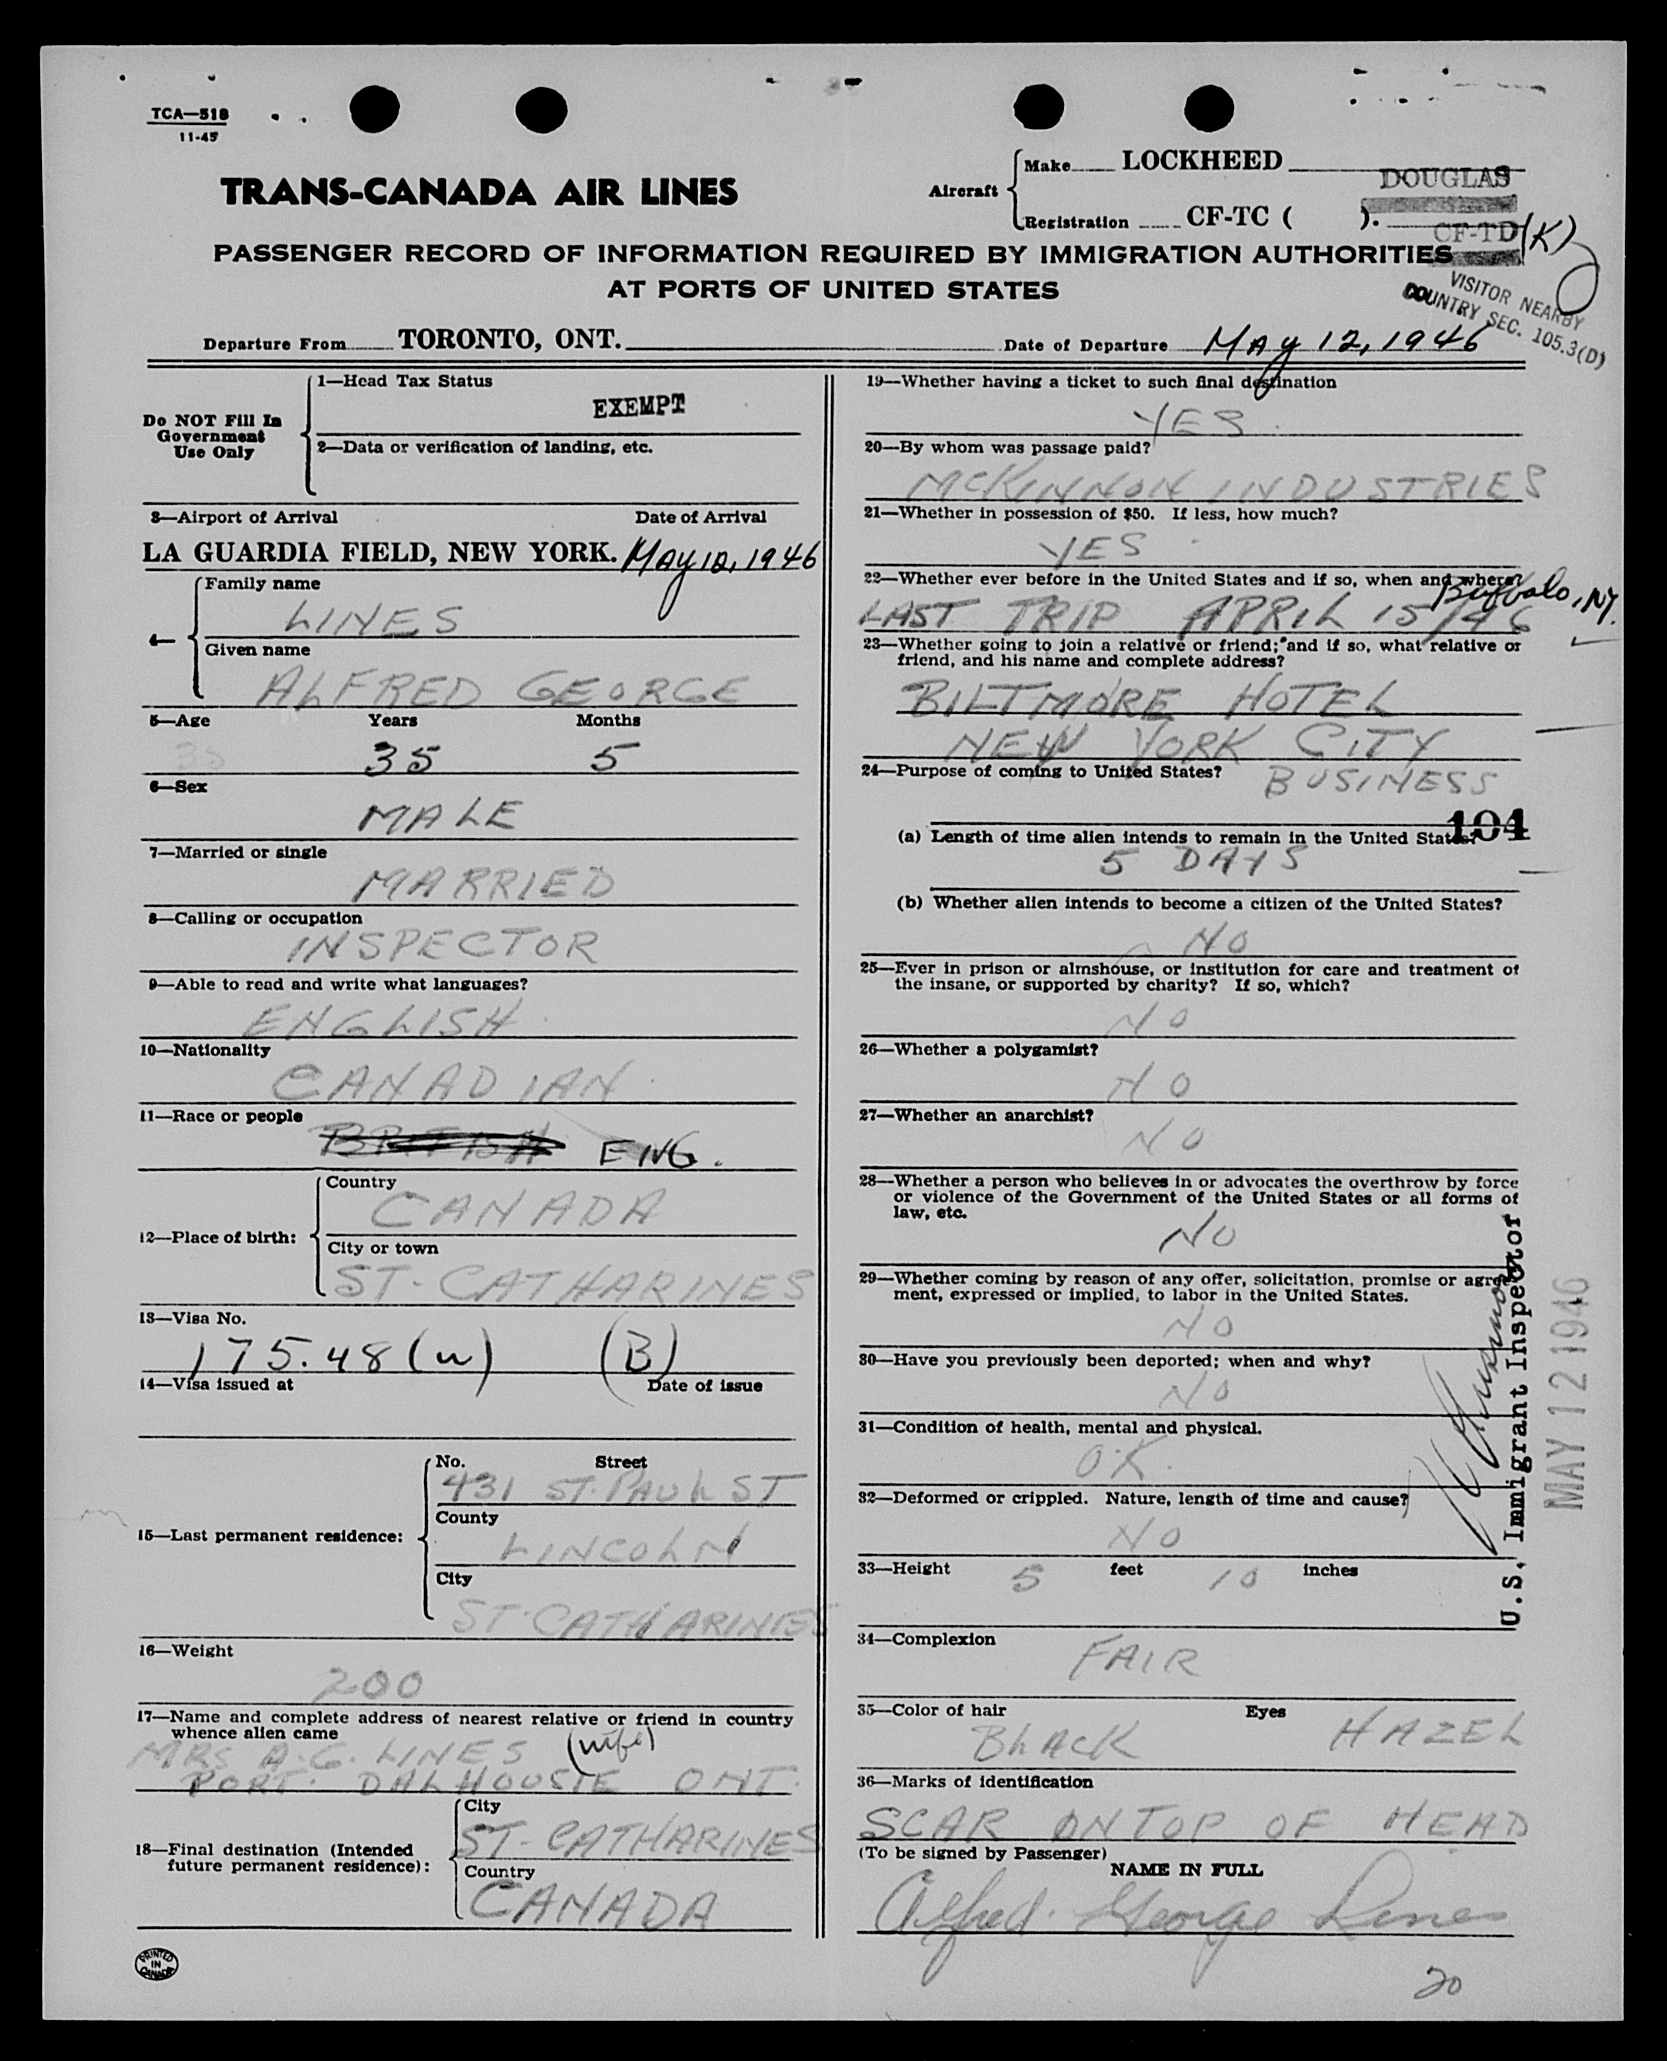 TCA—518
11-45
TRANS-CANADA AIR LINES
Aircraft
Make LOCKHEED
DOUGLAS
Registration CF-TC ( ).
CF-TD (K)
PASSENGER RECORD OF INFORMATION REQUIRED BY IMMIGRATION AUTHORITIES
AT PORTS OF UNITED STATES
VISITOR NEARBY
COUNTRY SEC. 105.3(D)
Departure From TORONTO, ONT. Date of Departure MAY 12, 1946
Do NOT Fill In
Government
Use Only
1—Head Tax Status
EXEMPT
2—Data or verification of landing, etc.
3—Airport of Arrival Date of Arrival
LA GUARDIA FIELD, NEW YORK. MAY 12, 1946
4—
Family name
LINES
Given name
ALFRED GEORGE
5—Age Years Months
35 35 5
6—Sex
MALE
7—Married or single
MARRIED
8—Calling or occupation
INSPECTOR
9—Able to read and write what languages?
ENGLISH
10—Nationality
CANADIAN
11—Race or people
BRITISH ENG.
12—Place of birth:
Country
CANADA
City or town
ST. CATHARINES
13—Visa No.
175.48 (w) (B)
14—Visa issued at Date of issue
15—Last permanent residence:
No. Street
431 ST. PAUL ST
County
LINCOLN
City
ST. CATHARINES
16—Weight
200
17—Name and complete address of nearest relative or friend in country
whence alien came
MRS A.G. LINES (wife)
PORT. DALHOUSIE ONT.
18—Final destination (Intended
future permanent residence):
City
ST. CATHARINES
Country
CANADA
PRINTED
IN
CANADA
19—Whether having a ticket to such final destination
YES
20—By whom was passage paid?
MCKINNON INDUSTRIES
21—Whether in possession of $50. If less, how much?
YES
22—Whether ever before in the United States and if so, when and where?
Buffalo, NY.
LAST TRIP APRIL 15/46
23—Whether going to join a relative or friend; and if so, what relative or
friend, and his name and complete address?
BILTMORE HOTEL
NEW YORK CITY
24—Purpose of coming to United States? BUSINESS
104
(a) Length of time alien intends to remain in the United States?
5 DAYS
(b) Whether alien intends to become a citizen of the United States?
NO
25—Ever in prison or almshouse, or institution for care and treatment of
the insane, or supported by charity? If so, which?
NO
26—Whether a polygamist?
NO
27—Whether an anarchist?
NO
28—Whether a person who believes in or advocates the overthrow by force
or violence of the Government of the United States or all forms of
law, etc.
NO
29—Whether coming by reason of any offer, solicitation, promise or agree-
ment, expressed or implied, to labor in the United States.
NO
30—Have you previously been deported; when and why?
NO
31—Condition of health, mental and physical.
O.K.
32—Deformed or crippled. Nature, length of time and cause?
NO
33—Height 5 feet 10 inches
34—Complexion
FAIR
35—Color of hair Eyes
BLACK HAZEL
36—Marks of identification
SCAR ON TOP OF HEAD
(To be signed by Passenger)
NAME IN FULL
Alfred George Lines
20
U.S. Immigrant Inspector
MAY 12 1946